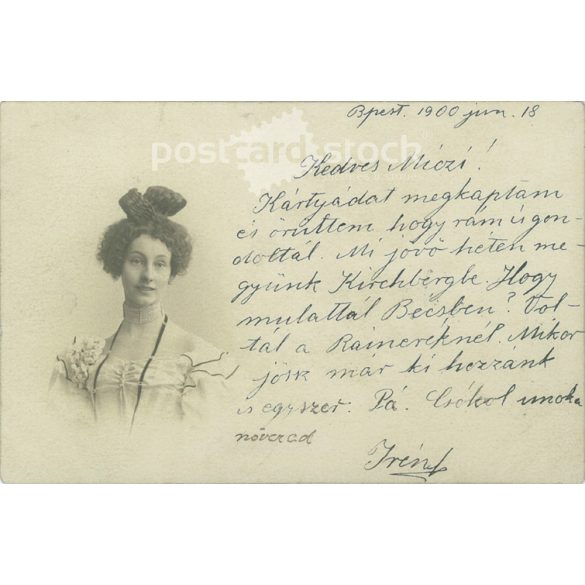 Bpest. 1900 jun. 18
postcardstock
Kedves Miczi!
Kártyádat megkaptam
és örültem hogy rám is gon-
doltál. Mi jövő héten me-
gyünk Kirchbergbe. Hogy
mulattál Bécsben? Vol-
tál a Raineréknél. Mikor
jösz már ki hozzánk
is egyszer. Pá. Csókol unoka
nővered
Irén